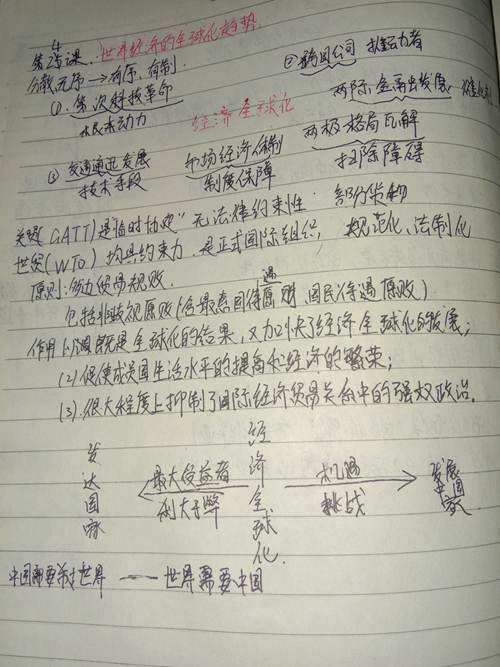 第24课. 世界经济的全球化趋势
分散无序→有序、有制
②跨国公司 推动者
①第三次科技革命
根本动力
国际金融的发展
经济全球化
③交通通讯发展
技术手段
市场经济体制
制度保障
两极格局瓦解
扫除障碍
关贸(GATT)是"临时协定"无法律约束性 部分货物
世贸(WTO)均具约束力 是正式国际组织, 规范化、法制化
原则:多边贸易规则.
包括非歧视原则(含最惠国待遇原则、国民待遇原则)
作用(1)既是全球化的结果,又加快了经济全球化的发展;
(2)促使成员国生活水平的提高和经济的繁荣;
(3)很大程度上抑制了国际经济贸易关系中的强权政治.
发达国家
最大受益者
利大于弊
经济全球化.
机遇
挑战
发展中国家
中国需要世界——世界需要中国